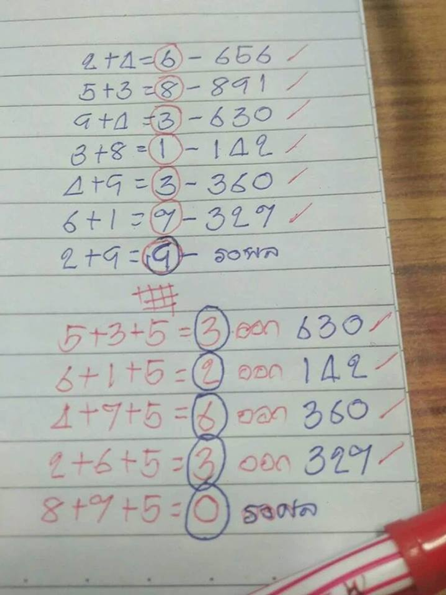 2+4=6 - 656 ✓
5+3=8 - 891 ✓
9+4=3 - 630 ✓
3+8=1 - 142 ✓
4+9=3 - 360 ✓
6+1=7 - 327 ✓
2+7=9 - รอผล
5+3+5=3 ออก 630 ✓
6+1+5=2 ออก 142 ✓
4+7+5=6 ออก 360 ✓
2+6+5=3 ออก 327 ✓
8+7+5=0 รอผล